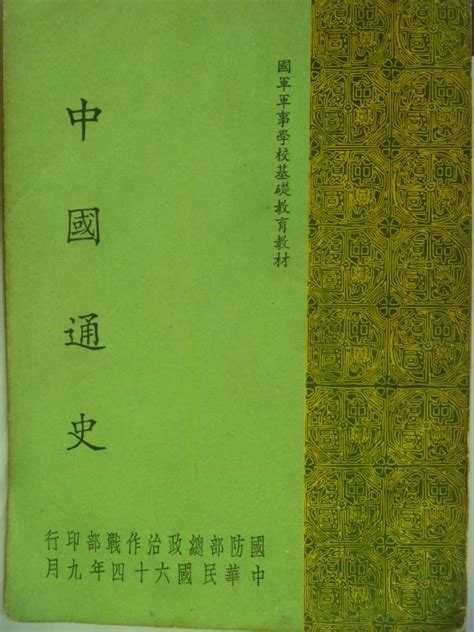 國軍軍事學校基礎教育教材
中國通史
國防部總政治作戰部印行
中華民國六十四年九月